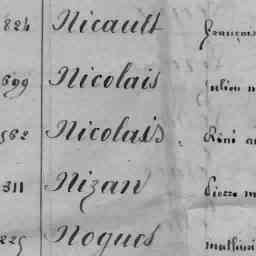 824 Nicault François
699 Nicolais Julien
562 Nicolais René
311 Nizan Pierre
225 Nogues